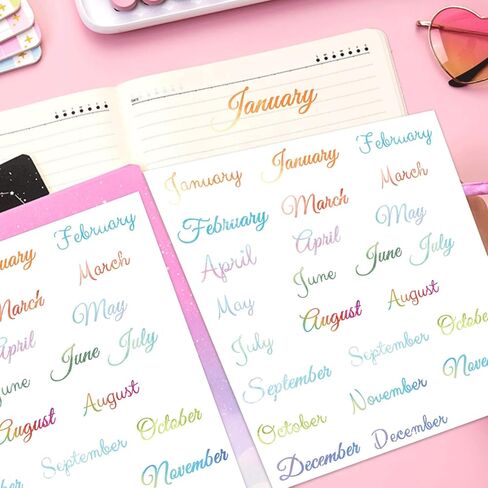 January
January
January
February
February
March
March
April
April
May
May
June
June
July
July
August
August
September
September
October
October
November
Novem
December
December
February
uary
March
March
May
April
June
July
une
August
August
October
September
November